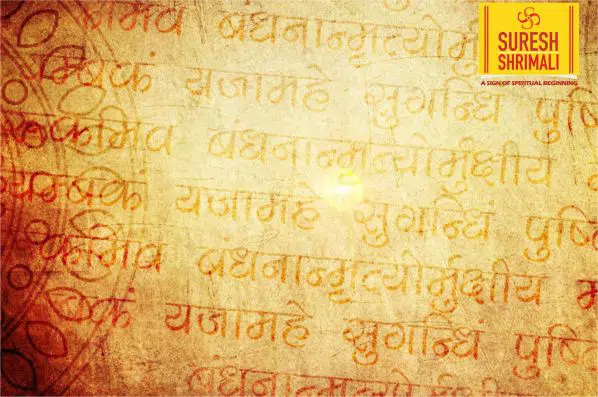 SURESH
SHRIMALI
A SIGN OF SPIRITUAL BEGINNING
बंधनान्मृत्योर्मु
यजामहे सुगन्धिं पुष्टि
बंधनान्मृत्योर्मुक्षीय
यम्बकं यजामहे सुगन्धिं पुष्टि
बंधनान्मृत्योर्मुक्षीय
म्बकं यजामहे सुगन्धिं पुष्टि